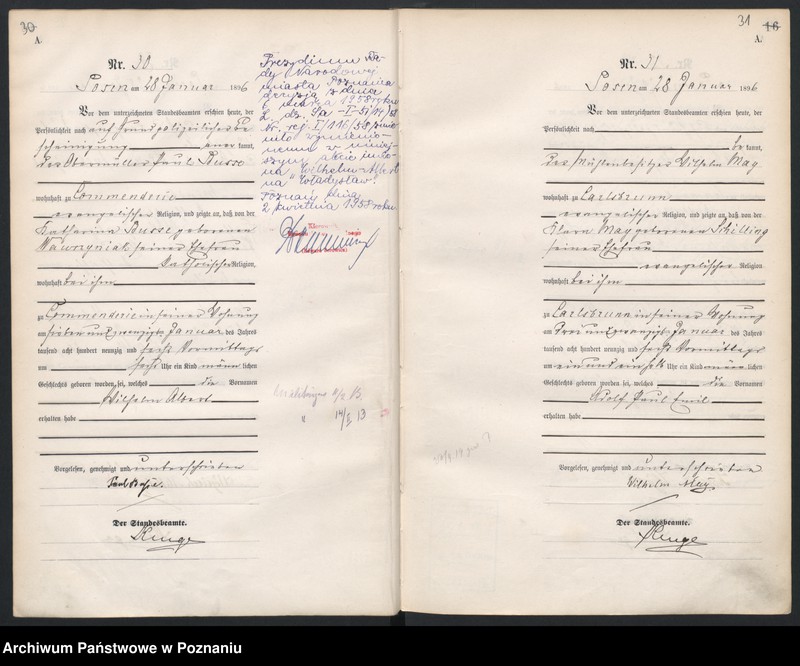 30
A.
Nr. 30
Posen am 28 Januar 1896
Vor dem unterzeichneten Standesbeamten erschien heute, der
Persönlichkeit nach auf Grund polizeilicher Be
scheinigung aner kannt,
des Obermüllers Paul Busse
wohnhaft zu Commenderie
evangelischer Religion, und zeigte an, daß von der
Katharina Busse geborenen
Wawrzyniak seiner Ehefrau
katholischer Religion,
wohnhaft bei ihm
zu Commenderie in seiner Wohnung
am sieben und zwanzigsten Januar des Jahres
tausend acht hundert neunzig und sechs Vormittags
um sechs Uhr ein Kind männlichen
Geschlechts geboren worden sei, welches die Vornamen
Wilhelm Albert
erhalten habe
Vorgelesen, genehmigt und unterschrieben
Paul Busse.
Der Standesbeamte.
Prezydium Ra-
dy Narodowej
miasta Poznania
decyzją z dnia
6 marca 1958 roku
Nr. rej. I/116/58 zmie-
niło wymienio-
nemu w niniej-
szym akcie imio-
na "Wilhelm-Albert"
na "Władysław".
Poznań, dnia
2 kwietnia 1958 roku
14/5 13
31
16
A.
Nr. 31
Posen am 28 Januar 1896
Vor dem unterzeichneten Standesbeamten erschien heute, der
Persönlichkeit nach
be kannt,
des Mühlenbesitzers Wilhelm May
wohnhaft zu Carlsbrunn
evangelischer Religion, und zeigte an, daß von der
Klara May geborenen Schilling
seiner Ehefrau
evangelischer Religion
wohnhaft bei ihm
zu Carlsbrunn in seiner Wohnung
am drei und zwanzigsten Januar des Jahres
tausend acht hundert neunzig und sechs Vormittags
um ein und ein halb Uhr ein Kind männlichen
Geschlechts geboren worden sei, welches die Vornamen
Adolf Paul Emil
erhalten habe
Vorgelesen, genehmigt und unterschrieben
Wilhelm May
Der Standesbeamte.
Archiwum Państwowe w Poznaniu